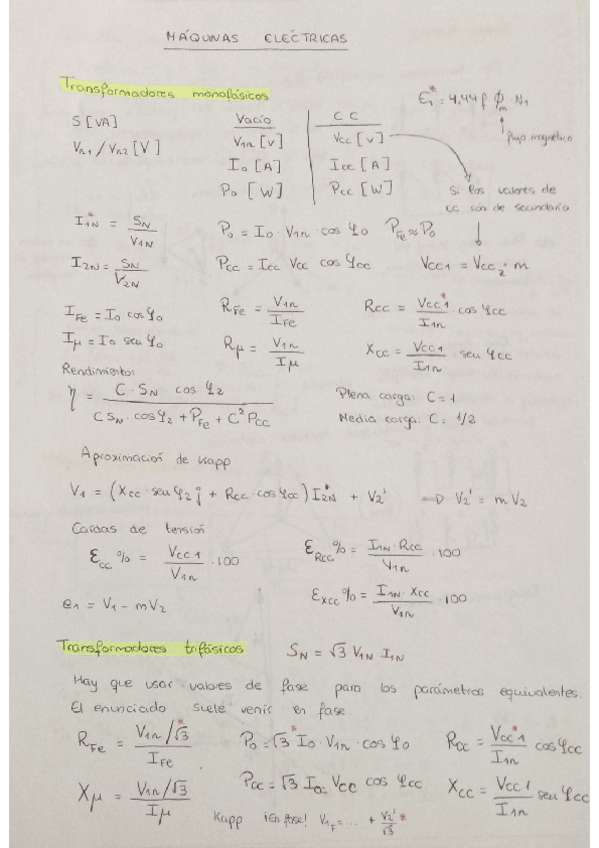 MÁQUINAS ELÉCTRICAS
Transformadores monofásicos
E₁* = 4,44 f ϕm N₁
flujo magnético
S [VA]
Vn1 / Vn2 [V]
Vacío
V1n [V]
I₀ [A]
P₀ [W]
CC
Vcc [V]
Icc [A]
Pcc [W]
Si los valores de
cc son de secundario
Vcc1 = Vcc2 · m
I1N* = SN / V1N
P₀ = I₀ · V1n cos φ₀ PFe ≈ P₀
I2N = SN / V2N
Pcc = Icc Vcc cos φcc
IFe = I₀ cos φ₀
RFe = V1n / IFe
Rcc = Vcc1* / I1n · cos φcc
Iμ = I₀ seu φ₀
Rμ = V1n / Iμ
Xcc = Vcc1 / I1n · seu φcc
Rendimiento:
η = C · SN · cos φ2 / C SN · cos φ2 + PFe + C² Pcc
Plena carga: C = 1
Media carga: C = 1/2
Aproximación de Kapp
V₁ = (Xcc · seu φ2 + Rcc · cos φcc) I2N* + V2' ⇒ V2' = m V2
Caídas de tensión
Ecc % = Vcc1 / V1n · 100
ERcc % = I1N · Rcc / V1n · 100
e₁ = V₁ - mV2
EXcc % = I1N · Xcc / V1n · 100
Transformadores trifásicos SN = √3 V1N I1N
Hay que usar valores de fase para los parámetros equivalentes.
El enunciado suele venir en fase
RFe = V1n/√3* / IFe
P₀ = √3* I₀ · V1n · cos φ₀
Rcc = Vcc1* / I1n cos φcc
Xμ = V1n/√3 / Iμ
Pcc = √3 Icc Vcc cos φcc
Xcc = Vcc1 / I1n seu φcc
Kapp ¡En fase! V1F = ... + V2'/√3 *